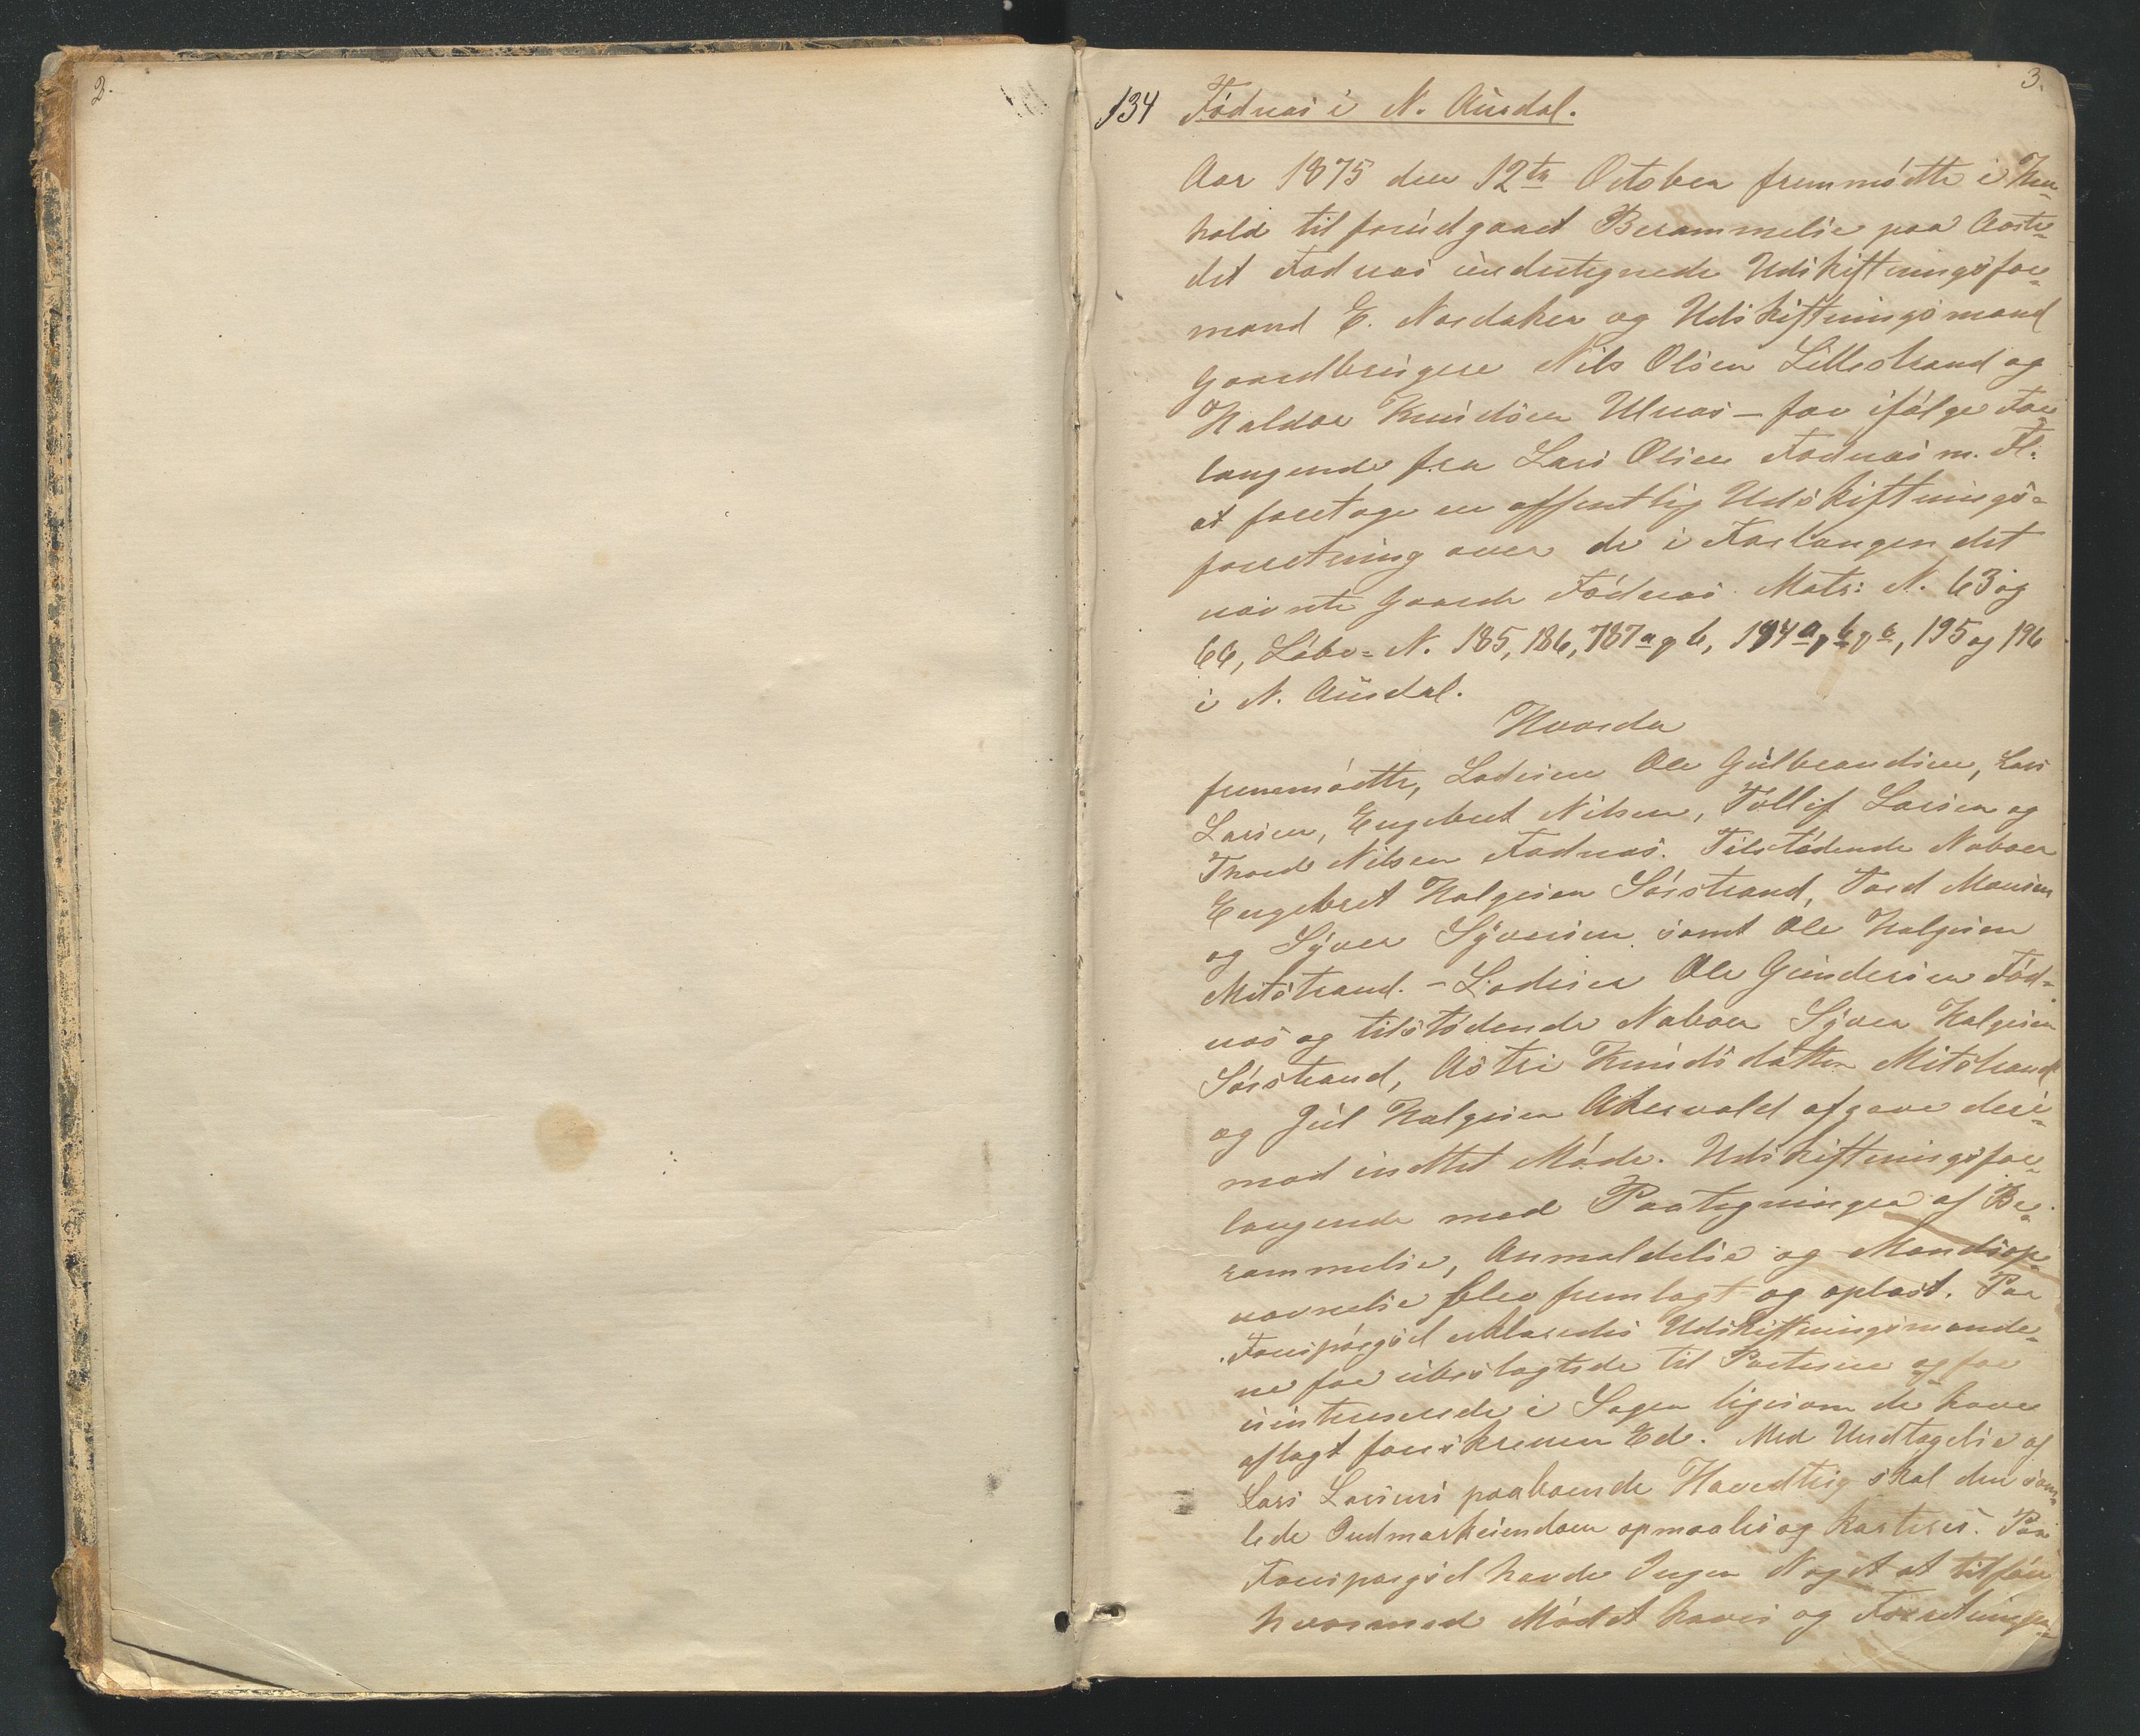 2.
3.
134 Fødnæs i N. Aurdal.
Aar 1875 den 12te October fremmødte i Hen-
hold til forudgaaet Berammelse paa Aaste-
det Fødnæs undertegnede Udskiftningsfor-
mand E. Nordaker og Udskiftningsmænd
Gaardbrugere Nils Olsen Lillestrand og
Haldor Knudsen Ulnæs - for ifølge For-
langende fra Lars Olsen Fødnæs m. Fl:
at foretage en offentlig Udskiftnings-
forretning over de i Forlangendet
nævnte Gaarde Fødnæs Matr: N. 63 og
66, Løbe-N. 185, 186, 187a og b, 194a, b og c, 195 og 196
i N. Aurdal.
Hvorda
fremmødte, Lodeiere Ole Gulbrandsen, Lars
Larsen, Engebret Nilsen, Tollif Larsen og
Thord Nilsen Fødnæs. Tilstødende Naboer
Engebret Halgesen Sørstrand, Tord Monsen
og Syver Syversen samt Ole Halgesen
Mitstrand. - Lodeier Ole Gundersen Fød-
næs og tilstødende Naboer Syver Halgesen
Sørstrand, Astri Knudsdatter Mitstrand
og Jul Halgesen Akervold afgave deri-
mod intet Møde. Udskiftningsfor-
langende med Paategninger af Be-
rammelse, Anmeldelse og Mandsop-
nævnelse blev fremlagt og oplæst. Paa
Forespørgsel erklæredes Udskiftningsmænde-
ne for ubeslægtede til Parterne og for
uinteresserede i Sagen ligesom de have
aflagt foreskreven Ed. Med Undtagelse af
Lars Larsens paaboende Havedteig skal den sam-
lede Indmarkeiendom opmaales og karteres. Paa
Forespørgsel havde Ingen Noget at tilføre
hvormed Mødet hæves og Forretningen